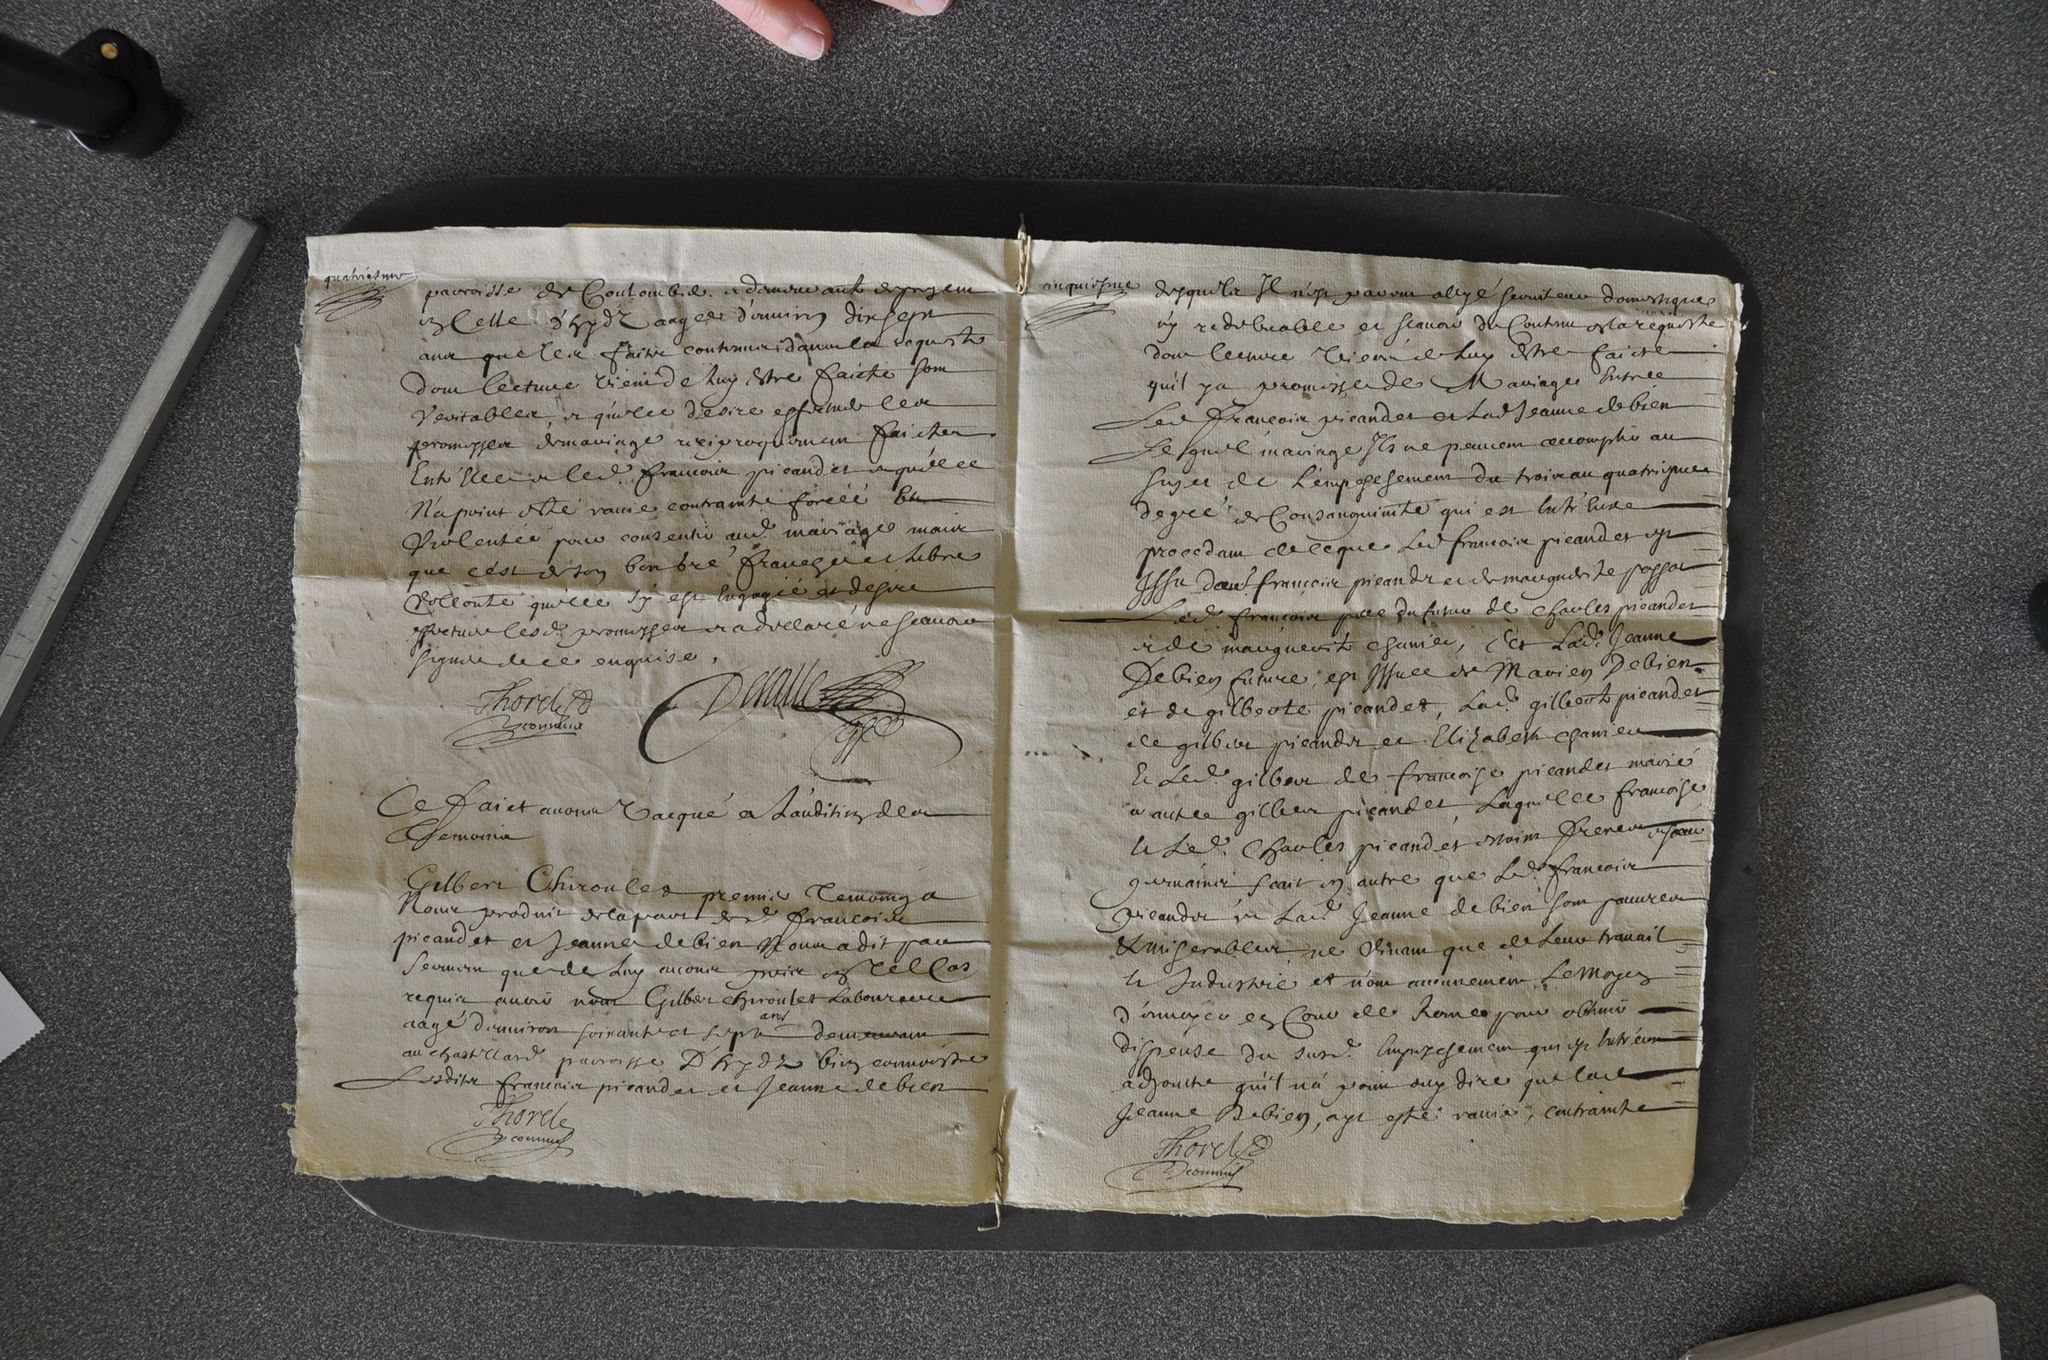 quatriesme
parroisse de Coulombie. et demeurant a present
en Celle d'hyds aagee d'environ dix sept
ans que les faits contenus dans la requeste
dont lecture vient de luy estre faicte sont
veritables, et qu'elle desire
promesses de mariage reciproquement faictes
Entr'Elle et led. francois picandet et qu'elle
N'a point esté ravie contrainte forcéé
Violentée pour consentir aud. mariage mais
que c'est de son bon gré franche et libre
vollonté qu'elle s'y est Engagéé et desire
effectuer lesd. promesses et a declaré ne scavoir
signer de ce enquise.
Thorel
commis
Ce faict avons vacqué a L'audition des
Tesmoins
Gilbert Chiroulet premier Temoing a
Nous produit de la part desd. francois
picandet et Jeanne debien Nous a dit par
serment que de luy avons pris en tel Cas
requis avoir nom Gilbert chiroulet Laboureur
aagé d'environ soixante et sept ans demeurant
au chastellard parroisse D'hyds bien connoistre
Lesdits francois picandet et Jeanne debien
Thorel
commis
cinquiesme
desquels Il n'est parent allyé serviteur domestique
ny redevable et scavoir du Contenu en la requeste
dont lecture vient de luy estre faicte
qu'il y a promesse de Mariage Entre
Led francois picandet et Lad Jeanne debien
Lequel mariage Ils ne peuvent accomplir au
sujet de L'empeschement du trois au quatriesme
degré de Consanguinité qui est Entr'Eux
procedant de ce que Led francois picandet est
Issu d'aut. francois picandet et de marguerite
Led. francois pere du futur de Charles picandet
et de marguerite chanier, Et Lad. Jeanne
Debien future, est Issuee de Marien Debien
et de gilberte picandet, Lad. gilberte picandet
de gilbert picandet et Elizabeth chanier
Et Led. gilbert de francoise picandet marié
a autre gilbert picandet, Laquelle francoise
Et Led. Charles picandet estoient freres et soeur
germains scait en outre que Led francois
picandet et Lad. Jeanne debien sont pauvres
& miserables ne vivant que de Leur travail
Et Industrie et n'ont aucunement Le Moyen
d'envoyer en Cour de Rome pour obtenir
dispense du susd. Empeschement qui est Entr'eux
adjouste qu'il n'a point ouy dire que lad
Jeanne Debien, ayt esté ravie, contrainte
Thorel
commis